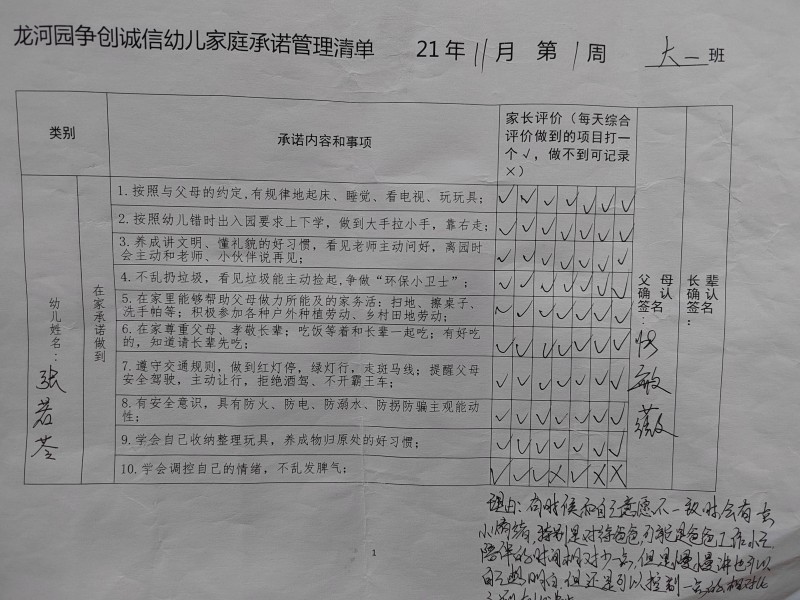 龙河园争创诚信幼儿家庭承诺管理清单 21年11月 第1周 大一班
类别
承诺内容和事项
家长评价（每天综合
评价做到的项目打一
个√，做不到可记录
×）
1.按照与父母的约定,有规律地起床、睡觉、看电视、玩玩具；
2.按照幼儿错时出入园要求上下学，做到大手拉小手，靠右走；
3.养成讲文明、懂礼貌的好习惯，看见老师主动问好，离园时
会主动和老师、小伙伴说再见；
4.不乱扔垃圾，看见垃圾能主动捡起,争做“环保小卫士”；
5.在家里能够帮助父母做力所能及的家务活：扫地、擦桌子、
洗手帕等；积极参加各种户外种植劳动、乡村田地劳动；
6.在家尊重父母、孝敬长辈；吃饭等着和长辈一起吃；有好吃
的，知道请长辈先吃；
7.遵守交通规则，做到红灯停，绿灯行，走斑马线；提醒父母
安全驾驶，主动让行，拒绝酒驾、不开霸王车；
8.有安全意识，具有防火、防电、防溺水、防拐防骗主观能动
性；
9.学会自己收纳整理玩具，养成物归原处的好习惯；
10.学会调控自己的情绪，不乱发脾气；
幼儿姓名：张若苓
在家承诺做到
父母
确认
签名：
敏
薇
长辈
确认
签名：
理由：有时候和自己意愿不一致时会有点
小情绪，特别是对待爸爸，可能是爸爸工作忙
陪伴的时间相对少一点，但是慢慢讲也可以
自己想明白，但还是可以控制一点的相对比
1